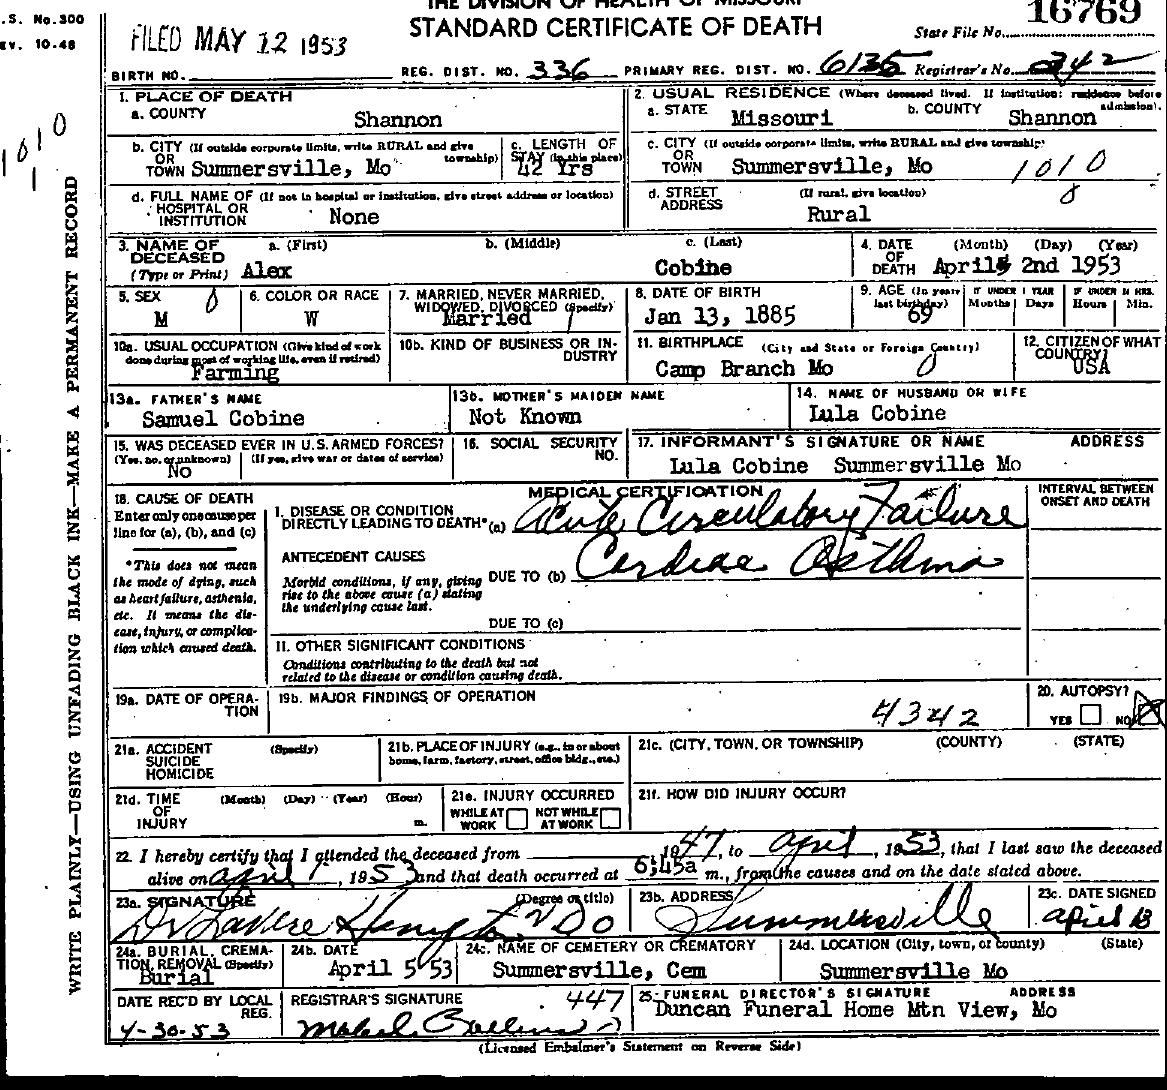 THE DIVISION OF HEALTH OF MISSOURI
STANDARD CERTIFICATE OF DEATH
.S. No. 300
EV. 10-48
FILED MAY 12 1953
State File No. 16769
BIRTH NO.
REG. DIST. NO. 336
PRIMARY REG. DIST. NO. 6135
Registrar's No. 342
WRITE PLAINLY—USING UNFADING BLACK INK—MAKE A PERMANENT RECORD
1010
1
1. PLACE OF DEATH
a. COUNTY
Shannon
b. CITY (If outside corporate limits, write RURAL and give township)
OR
TOWN Summersville, Mo
c. LENGTH OF STAY (in this place)
42 Yrs
d. FULL NAME OF (If not in hospital or institution, give street address or location)
HOSPITAL OR
INSTITUTION
None
2. USUAL RESIDENCE (Where deceased lived. If institution: residence before admission).
a. STATE
Missouri
b. COUNTY
Shannon
c. CITY (If outside corporate limits, write RURAL and give township)
OR
TOWN Summersville, Mo
1010
0
d. STREET ADDRESS
(If rural, give location)
Rural
3. NAME OF DECEASED
(Type or Print)
a. (First)
Alex
b. (Middle)
c. (Last)
Cobine
4. DATE OF DEATH
(Month) (Day) (Year)
April 2nd 1953
5. SEX
0
M
6. COLOR OR RACE
W
7. MARRIED, NEVER MARRIED, WIDOWED, DIVORCED (Specify)
Married 1
8. DATE OF BIRTH
Jan 13, 1885
9. AGE (In years last birthday)
69
IF UNDER 1 YEAR
Months Days
IF UNDER 24 HRS.
Hours Min.
10a. USUAL OCCUPATION (Give kind of work done during most of working life, even if retired)
Farming
10b. KIND OF BUSINESS OR INDUSTRY
11. BIRTHPLACE (City and State or Foreign Country)
Camp Branch Mo 0
12. CITIZEN OF WHAT COUNTRY?
USA
13a. FATHER'S NAME
Samuel Cobine
13b. MOTHER'S MAIDEN NAME
Not Known
14. NAME OF HUSBAND OR WIFE
Lula Cobine
15. WAS DECEASED EVER IN U.S. ARMED FORCES?
(Yes, no, or unknown) (If yes, give war or dates of service)
No
16. SOCIAL SECURITY NO.
17. INFORMANT'S SIGNATURE OR NAME ADDRESS
Lula Cobine Summersville Mo
18. CAUSE OF DEATH
Enter only one cause per line for (a), (b), and (c)
*This does not mean the mode of dying, such as heart failure, asthenia, etc. It means the disease, injury, or complication which caused death.
MEDICAL CERTIFICATION
INTERVAL BETWEEN ONSET AND DEATH
I. DISEASE OR CONDITION
DIRECTLY LEADING TO DEATH* (a) Acute Circulatory Failure
ANTECEDENT CAUSES
Morbid conditions, if any, giving rise to the above cause (a) stating the underlying cause last.
DUE TO (b) Cardiac Asthma
DUE TO (c)
II. OTHER SIGNIFICANT CONDITIONS
Conditions contributing to the death but not related to the disease or condition causing death.
19a. DATE OF OPERATION
19b. MAJOR FINDINGS OF OPERATION
4342
20. AUTOPSY?
YES NO
21a. ACCIDENT (Specify)
SUICIDE
HOMICIDE
21b. PLACE OF INJURY (e.g., in or about home, farm, factory, street, office bldg., etc.)
21c. (CITY, TOWN, OR TOWNSHIP) (COUNTY) (STATE)
21d. TIME OF INJURY
(Month) (Day) (Year) (Hour)
m.
21e. INJURY OCCURRED
WHILE AT WORK NOT WHILE AT WORK
21f. HOW DID INJURY OCCUR?
22. I hereby certify that I attended the deceased from 1947, to April, 1953, that I last saw the deceased
alive on April 1, 1953 and that death occurred at 6:45a m., from the causes and on the date stated above.
23a. SIGNATURE (Degree or title)
Do
23b. ADDRESS
Summersville
23c. DATE SIGNED
April 13
24a. BURIAL, CREMATION, REMOVAL (Specify)
Burial
24b. DATE
April 5 53
24c. NAME OF CEMETERY OR CREMATORY
Summersville, Cem
24d. LOCATION (City, town, or county) (State)
Summersville Mo
DATE REC'D BY LOCAL REG.
4-30-53
REGISTRAR'S SIGNATURE
447
25. FUNERAL DIRECTOR'S SIGNATURE ADDRESS
Duncan Funeral Home Mtn View, Mo
(Licensed Embalmer's Statement on Reverse Side)